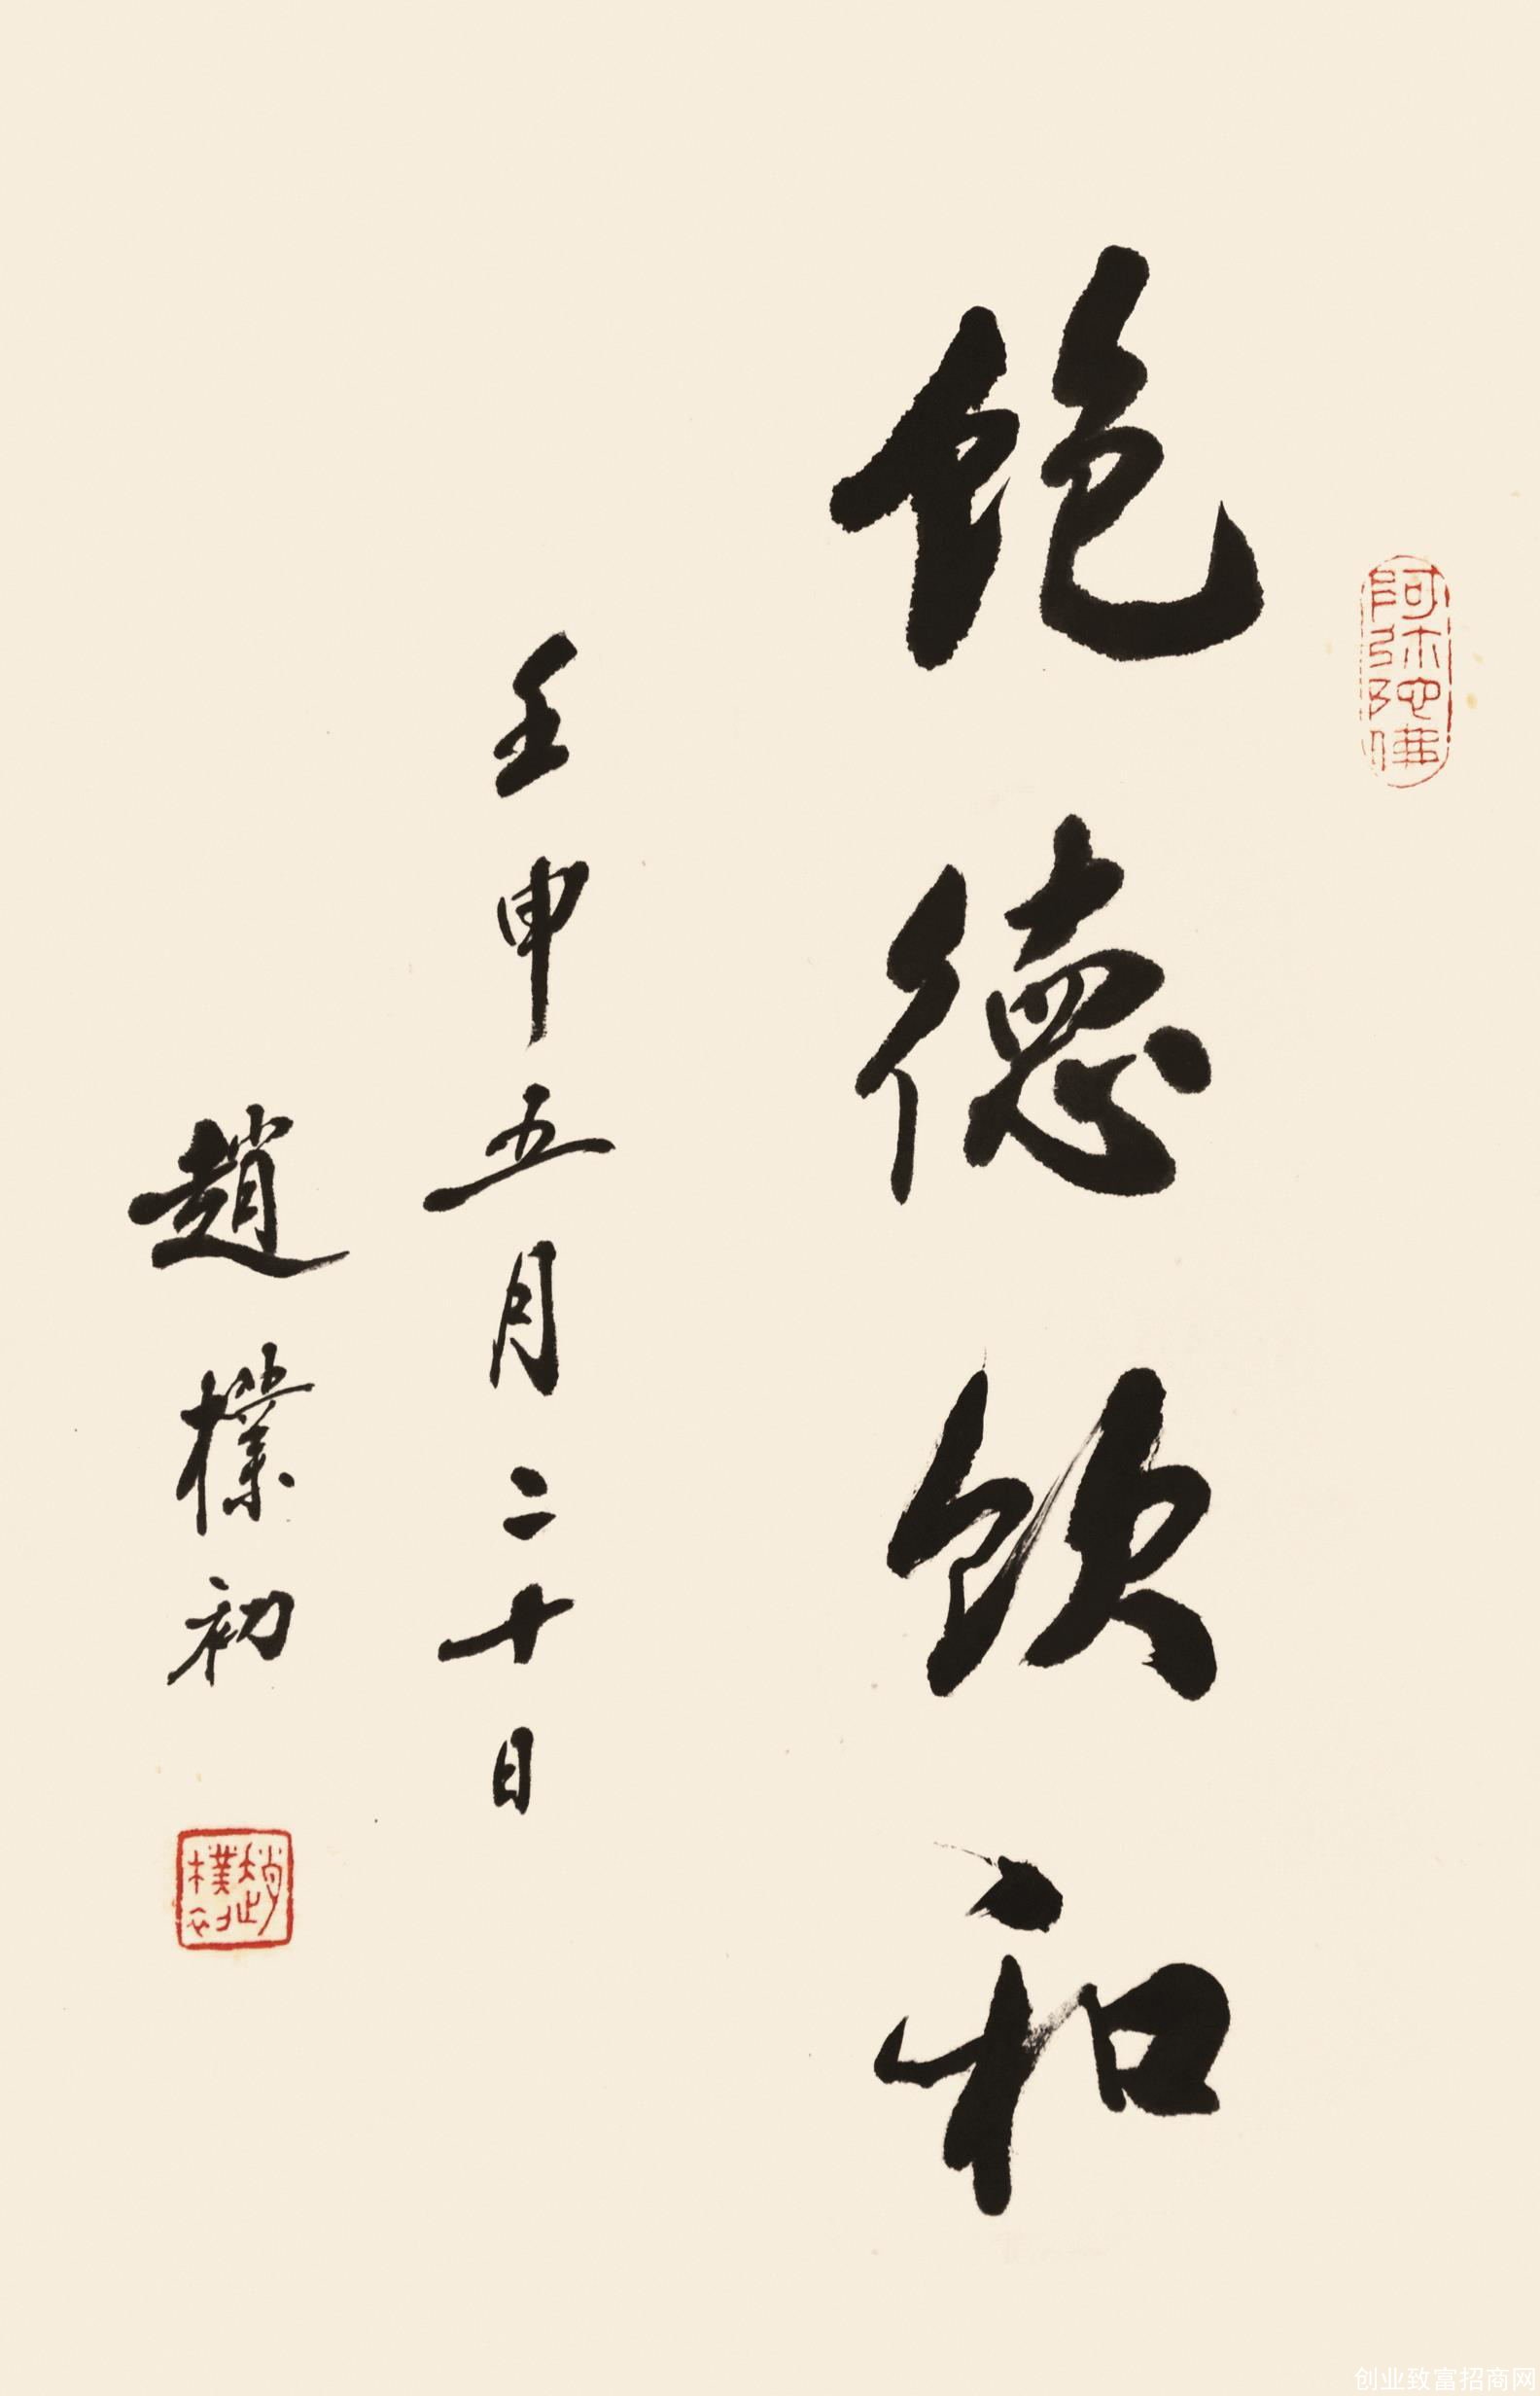 飽德飲和
壬申五月二十日
趙樸初
阿弥陀佛
趙樸初
创业致富招商网